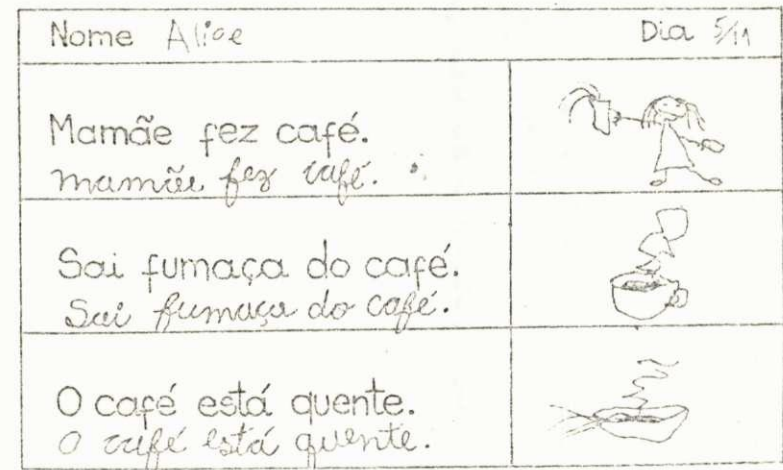 Nome Alice Dia 5/11
Mamãe fez café.
mamãe fez café.
Sai fumaça do café.
Sai fumaça do café.
O café está quente.
O café está quente.